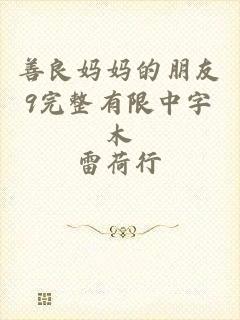 善良妈妈的朋友
9完整有限中宇
木
雷荷行